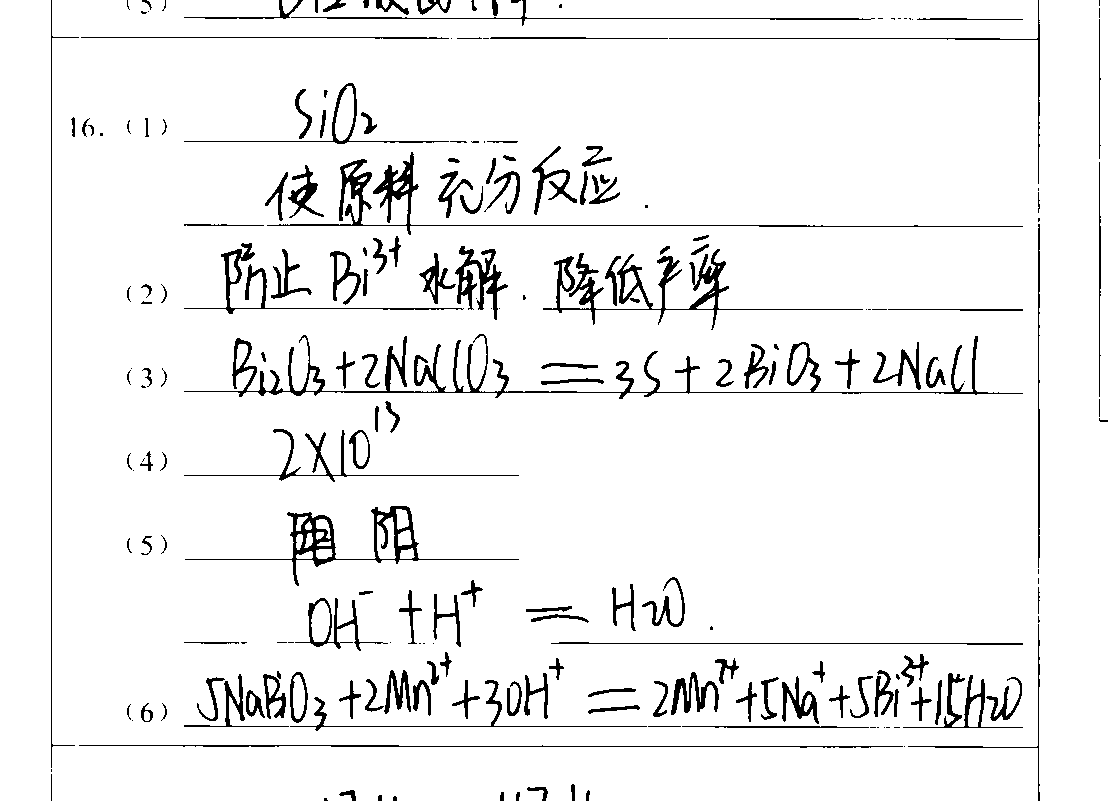 (5)
16. (1) SiO₂
使原料充分反应.
(2) 防止 Bi³⁺ 水解. 降低产率
(3) Bi₂O₃+2NaClO₃ ══ 3S+2BiO₃+2NaCl
(4) 2×10¹³
(5) 阴
OH⁻ + H⁺ ═ H₂O.
(6) 5NaBiO₃+2Mn²⁺+30H⁺ ══ 2Mn⁷⁺+5Na⁺+5Bi³⁺+15H₂O